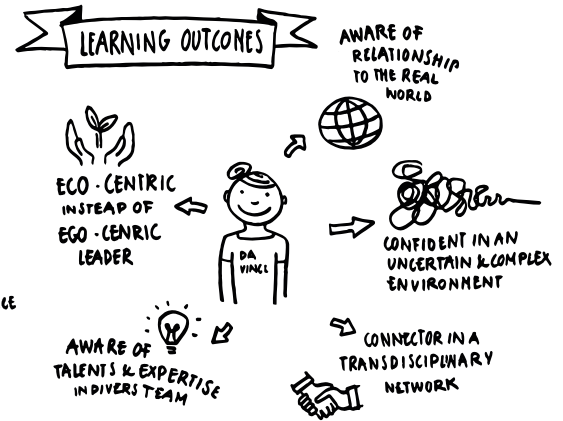 LEARNING OUTCOMES
AWARE OF
RELATIONSHIP
TO THE REAL
WORLD
ECO-CENTRIC
INSTEAP OF
EGO-CENRIC
LEADER
DA
VINCI
CONFIDENT IN AN
UNCERTAIN & COMPLEX
ENVIRONMENT
CE
AWARE OF
TALENTS & EXPERTISE
IN DIVERS TEAM
CONNECTOR IN A
TRANSDISCIPLINARY
NETWORK